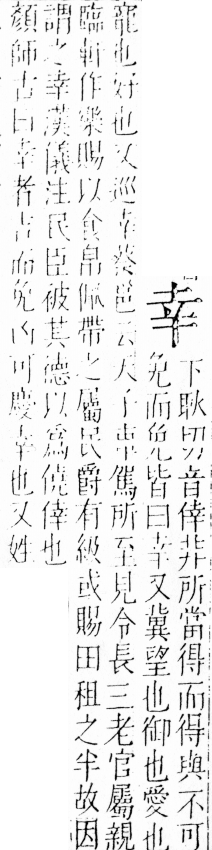 幸
下耿切音倖非所當得而得與不可
免而免皆曰幸又冀望也御也愛也
寵也好也又巡幸蔡邕云天子車駕所至見令長三老官屬親
臨軒作樂賜以食帛佩帶之屬民爵有級或賜田租之半故因
謂之幸漢儀注民臣被其德以爲僥倖也
顏師古曰幸者吉而免凶可慶幸也又姓